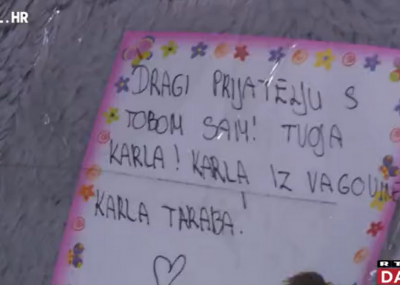 L.HR
DRAGI PRIJATELJU S
TOBOM SAM! TVOJA
KARLA! KARLA IZ VAGOUNE
KARLA TARABA!
RT
DA